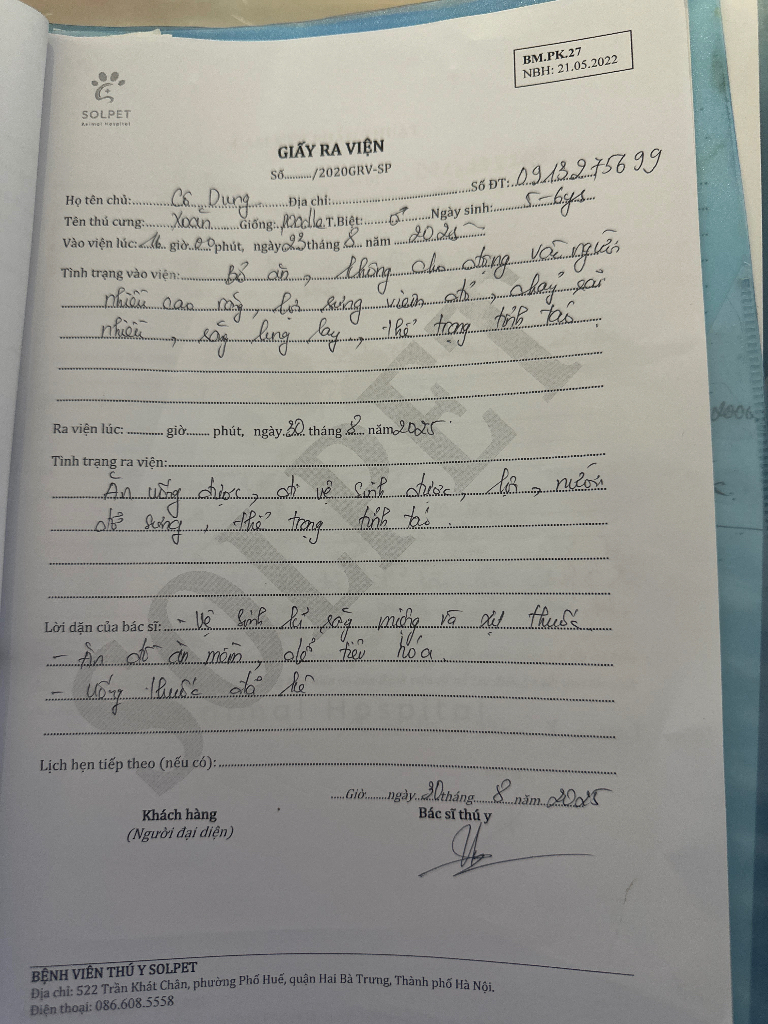 BM.PK.27
NBH: 21.05.2022
SOLPET
Animal Hospital
GIẤY RA VIỆN
Số........./2020GRV-SP
Họ tên chủ: Cô Dung Địa chỉ: Số ĐT: 0913275699
Tên thú cưng: Xoăn Giống: poodle T.Biệt: ♂ Ngày sinh: 5-6ys
Vào viện lúc: 16 giờ 00 phút, ngày 23 tháng 8 năm 2025
Tình trạng vào viện: Bỏ ăn, không cho động vào người
nhiều cao răng, lợi sưng viêm đỏ, chảy dãi
nhiều, răng lung lay, thể trạng tỉnh táo
Ra viện lúc: ........... giờ....... phút, ngày 30 tháng 8 năm 2025
Tình trạng ra viện:
Ăn uống được, đi vệ sinh được, lợi, nướu
đỡ sưng, thể trạng tỉnh táo.
Lời dặn của bác sĩ: - Vệ sinh kĩ răng miệng và xịt thuốc
- Ăn đồ ăn mềm, dễ tiêu hóa.
- Uống thuốc đã kê
Animal Hospital
Lịch hẹn tiếp theo (nếu có):
....Giờ.......ngày 30 tháng 8 năm 2025
Khách hàng Bác sĩ thú y
(Người đại diện)
BỆNH VIỆN THÚ Y SOLPET
Địa chỉ: 522 Trần Khát Chân, phường Phố Huế, quận Hai Bà Trưng, Thành phố Hà Nội.
Điện thoại: 086.608.5558